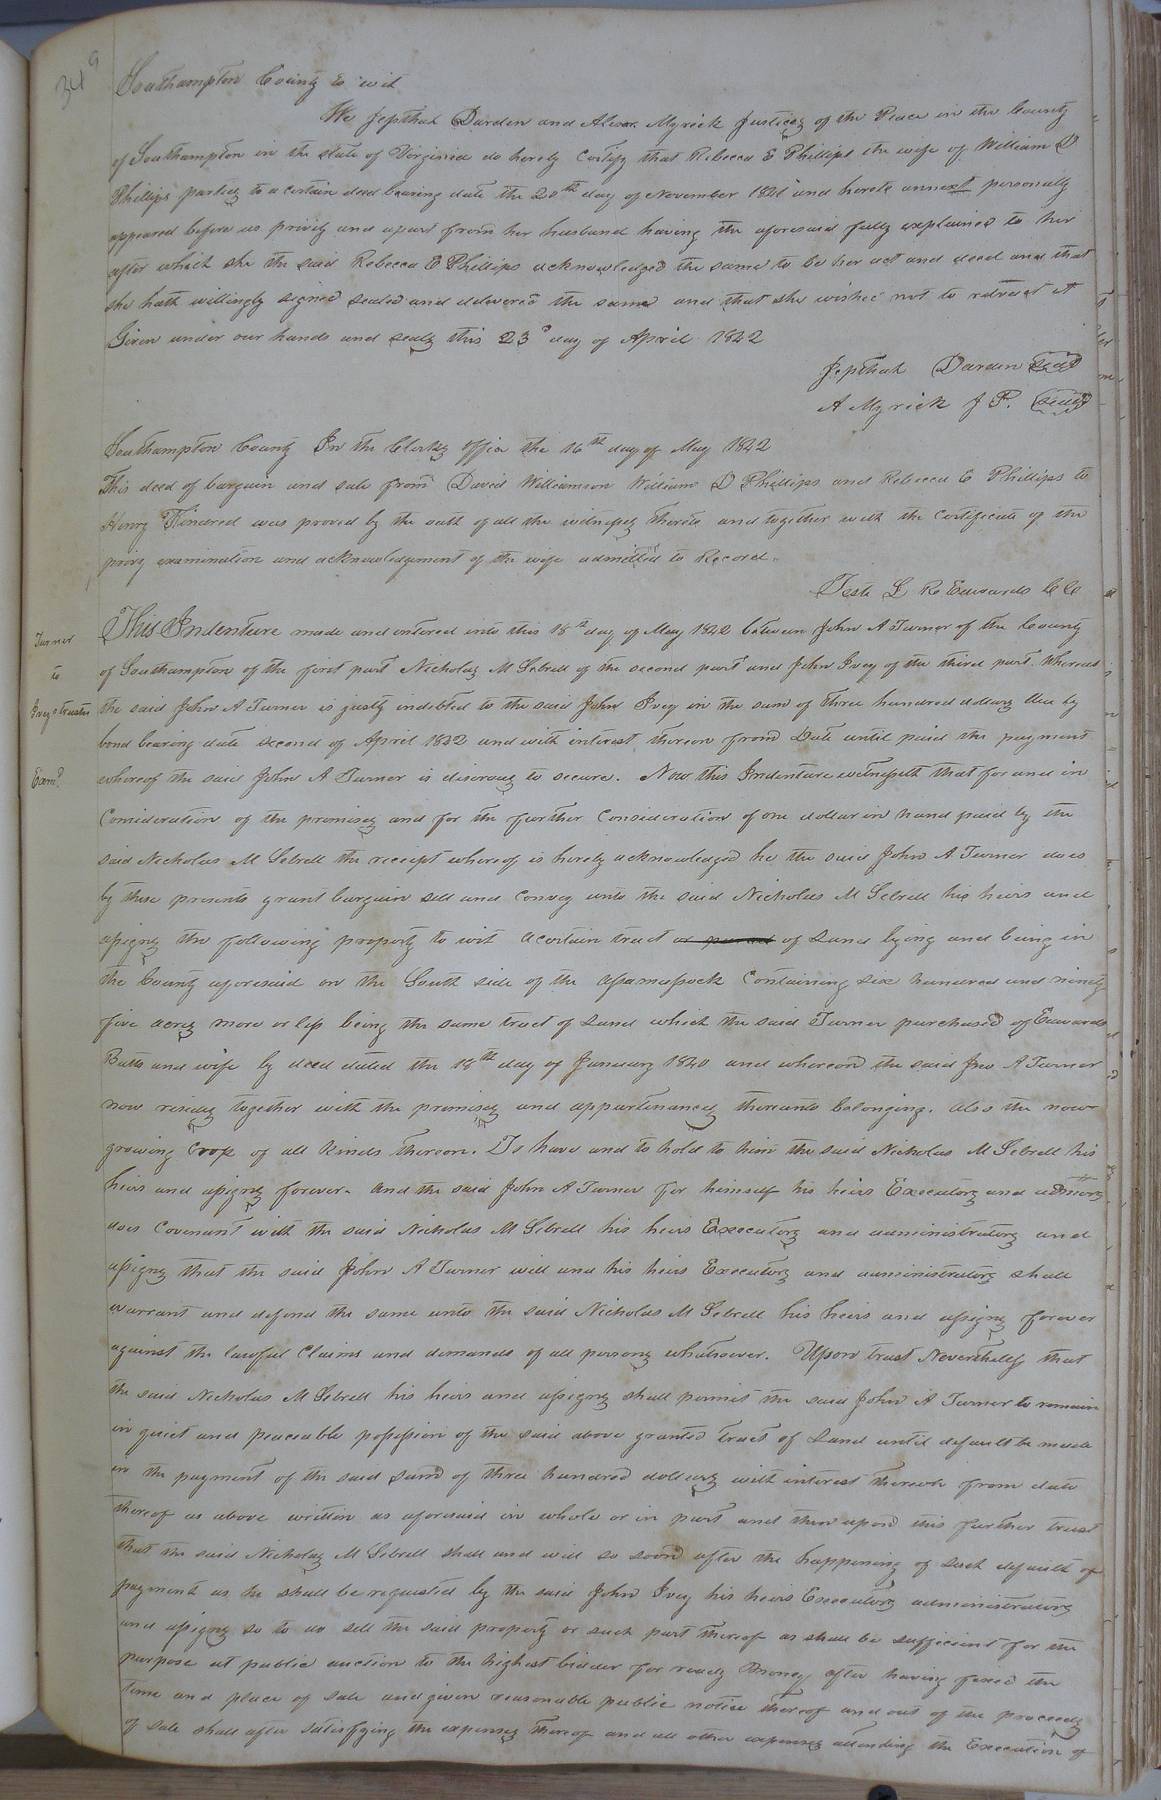 34a
Southampton County to wit
We Jepthah Darden and Alexr. Myrick Justices of the Peace in the County
of Southampton in the state of Virginia do hereby certify that Rebecca E Phillips the wife of William D
Phillips parties to a certain deed bearing date the 20th day of November 1841 and hereto annext personally
appeared before us privily and apart from her husband having the aforesaid fully explained to her
after which she the said Rebecca E Phillips acknowledged the same to be her act and deed and that
she hath willingly signed sealed and delivered the same and that she wished not to retract it
Given under our hands and seals this 23d day of April 1842
Jepthah Darden seal
A Myrick J P. seal
Southampton County In the Clerks Office the 16th day of May 1842
This deed of bargain and sale from David Williamson William D Phillips and Rebecca E Phillips to
Henry Kindred was proved by the oath of all the witnesses thereto and together with the certificate of the
privy examination and acknowledgement of the wife admitted to Record.
Teste L R Edwards CC
Turner
to
Ivey's trustee
Exmd.
This Indenture made and entered into this 18th day of May 1842 between John A Turner of the County
of Southampton of the first part Nicholas M Sebrell of the second part and John Ivey of the third part. Whereas
the said John A Turner is justly indebted to the said John Ivey in the sum of three hundred dollars due by
bond bearing date second of April 1842 and with interest thereon from Date until paid the payment
whereof the said John A Turner is desirous to secure. Now this Indenture witnesseth that for and in
Consideration of the premises and for the further Consideration of one dollar in hand paid by the
said Nicholas M Sebrell the receipt whereof is hereby acknowledged he the said John A Turner does
by these presents grant bargain sell and convey unto the said Nicholas M Sebrell his heirs and
assigns the following property to wit a certain tract or parcel of Land lying and being in
the County aforesaid on the South side of the Assamoosock Containing six hundred and ninety
five acres more or less being the same tract of Land which the said Turner purchased of Edwards
Butts and wife by deed dated the 18th day of January 1840 and whereon the said Jno A Turner
now resides together with the premises and appurtenances thereunto belonging. Also the now
growing crop of all kinds thereon. To have and to hold to him the said Nicholas M Sebrell his
heirs and assigns forever. And the said John A Turner for himself his heirs Executors and admors
does covenant with the said Nicholas M Sebrell his heirs Executors and administrators and
assigns that the said John A Turner will and his heirs Executors and administrators shall
warrant and defend the same unto the said Nicholas M Sebrell his heirs and assigns forever
against the lawful Claims and demands of all persons whatsoever. Upon trust Nevertheless that
the said Nicholas M Sebrell his heirs and assigns shall permit the said John A Turner to remain
in quiet and peaceable possession of the said above granted tract of Land until default be made
in the payment of the said sum of three hundred dollars with interest thereon from date
thereof as above written as aforesaid in whole or in part and then upon this further trust
that the said Nicholas M Sebrell shall and will so soon after the happening of such default of
payment as he shall be requested by the said John Ivey his heirs Executors administrators
and assigns so to do sell the said property or such part thereof as shall be sufficient for the
purpose at public auction to the highest bidder for ready money after having fixed the
time and place of sale and given reasonable public notice thereof and out of the proceeds
of sale shall after satisfying the expenses thereof and all other expenses attending the Execution of